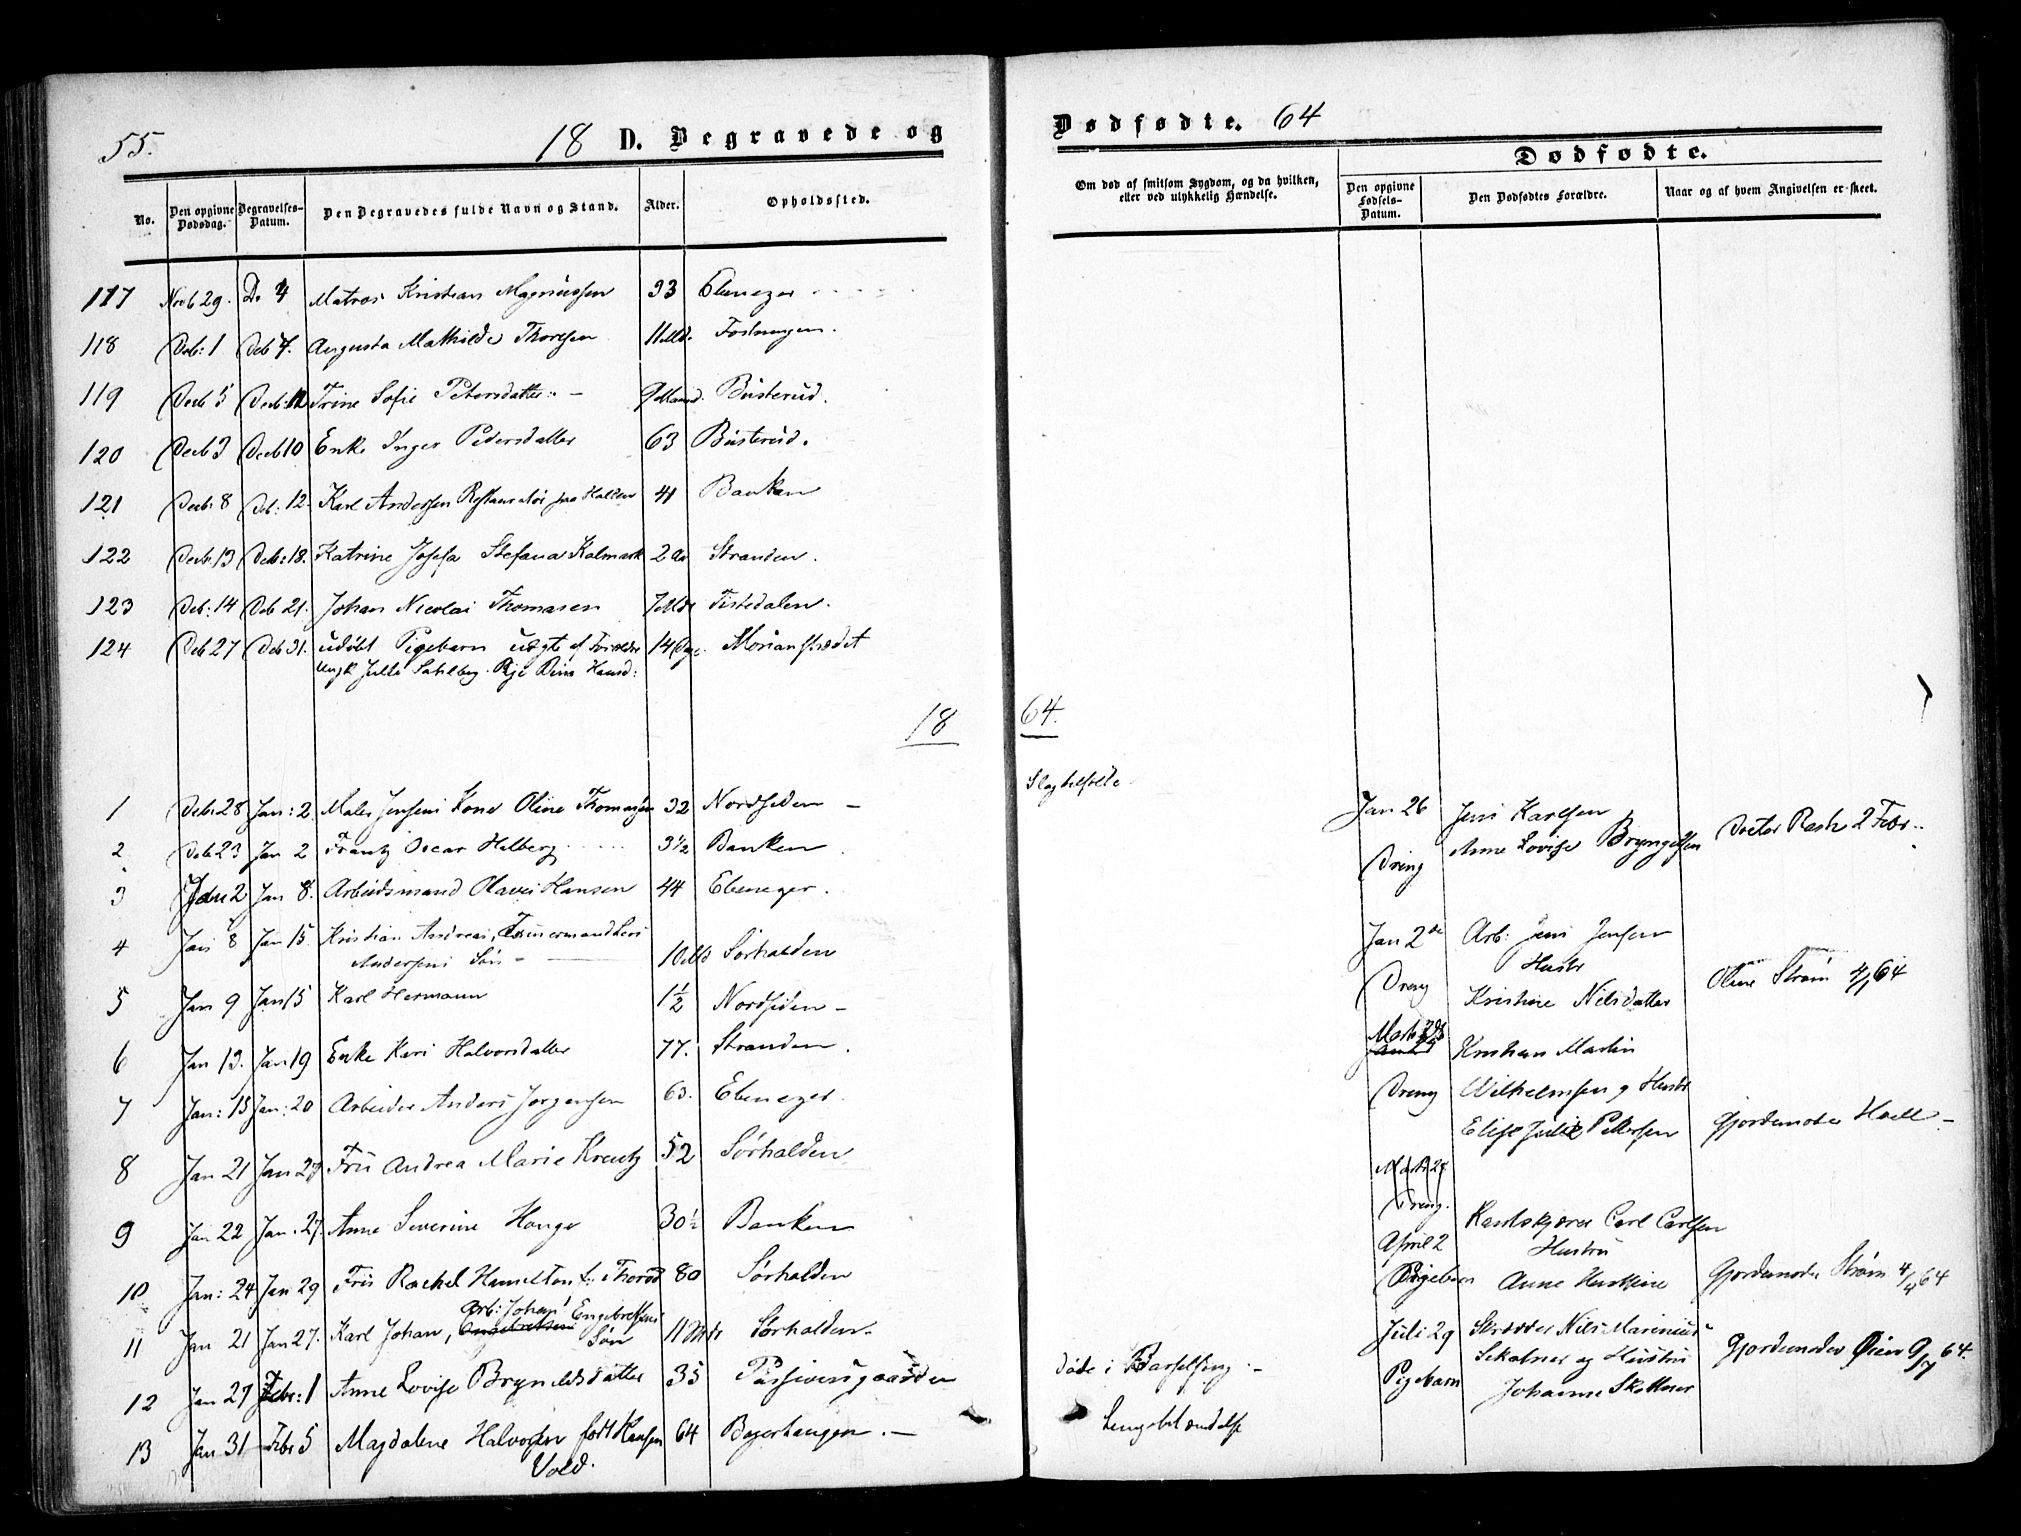 55.
18 D. Begravede og
Dødfødte. 64
No.
Den opgivne Dødsdag.
Begravelses-Datum.
Den Begravedes fulde Navn og Stand.
Alder.
Opholdssted.
Om død af smitsom Sygdom, og da hvilken, eller ved ulykkelig Hændelse.
Dødfødte.
Den opgivne Fødsels-Datum.
Den Dødfødtes Forældre.
Naar og af hvem Angivelsen er skeet.
117 Novb 29. D. 4 Matros Kristian Magnussen 33 Ebenezer
118 Decb: 1 Decb 7. Augusta Mathilde Thoresen 11 Md. Festningen.
119 Decb 5 Decb: 12 Trine Sofie Petersdatter 9 Maand. Busterud.
120 Decb 3 Decb 10 Enke Inger Pedersdatter 63 Busterud.
121 Decb: 8 Deb: 12. Karl Anderssen Restauratør paa Halden 41 Banken
122 Decb. 13 Decb: 18. Katrine Josefa Stefana Kalmark 2 Aar Stranden.
123 Deb: 14 Deb 21. Johan Nicolai Thomasen 7 Md Tistedalen.
124 Deb 27 Deb 31. udøbt Pigebarn uægte af Forældre 14 Dage Morianstrædet
Ungk Jull Sahlberg. Pige Hansd:
18 64.
1 Deb: 28 Jan: 2. Maler Jensens Kone Oline Thomasen 32 Nordsiden –
2 Deb 23 Jan 2 Frantz Oscar Helberg 3½ Banken
3 Jan 2 Jan 8. Arbeidsmand Olaves Hansen 44 Ebenezer.
4 Jan 8 Jan 15. Kristian Andreas, Tømermand Lars
Andersens Søn – 10 Md Sørhalden
5 Jan 9 Jan 15 Karl Hermann 1½ Nordsiden –
6 Jan 13. Jan 19 Enke Kari Halvorsdatter 77. Stranden.
7 Jan: 15 Jan: 20 Arbeider Anders Jørgensen 63. Ebenezer.
8 Jan 21 Jan 27 Fru Andrea Marie Kreutz 52 Sørhalden
9 Jan 22 Jan. 27. Anne Severine Hauge 30½ Banken
10 Jan: 24 Jan 29 Fru Rachel Hamilton f: Thorød 80 Sørhalden
11 Jan 21 Jan 27. Karl Johan, Arb: Johan Engebretsens
Søn 11 Md Sørhalden.
12 Jan 27 Febr: 1 Anne Lovise Bryneldsdatter 35 Døde i Barselseng. –
13 Jan 31 Febr 5 Magdalene Halvorsen født Hansen 64 Bøgerhaugen. – Lungebetændelse
Vold.
Jan 26 Jens Karlsen
Dreng Anne Lovise Bryngelsen Doctor Rash 2 Febr.
Jan 2de Arb: Jens Jensen
Hustr
Dreng Kristine Nilsdatter Oline Strøm 4/1 64
Marts
Kristian Martin
Dreng Wilhelmsen og Hustr
Elise Julie Pettersen Gjordemoder Holt –
Marts 27.
Dreng.
April 2 Karl Carl Carlsen
Hustru
Pigebarn Anne Gjordemoder Strøm 4/4 64
Juli 29 Skrædder Nils Marinius
og Hustru Gjordemoder Øien 9/7 64.
Pigebarn Johanne